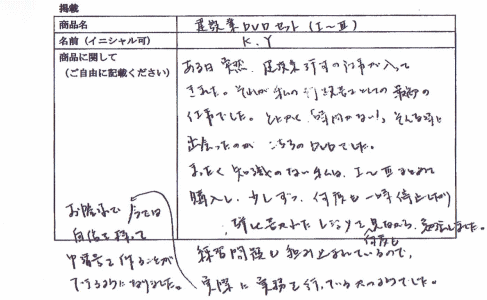 掲載
商品名 建設業DVDセット(I〜Ⅲ)
名前(イニシャル可) K.Y
商品に関して
(ご自由に記載ください)
ある日突然、建設業許可の仕事が入って
きました。それが私の行政書士としての最初の
仕事でした。とにかく「時間がない!」そんな時に
出会ったのが こちらのDVDでした。
まったく知識のない私は、I〜Ⅲまとめて
購入し、少しずつ、何度も一時停止したり
、しながら 見ながら、勉強しました。
何度も
練習問題も組み込まれているので、
実際に業務を行っているようでした。
お陰様で 今では
自信を持って
申請書を作ることが
できるようになりました。